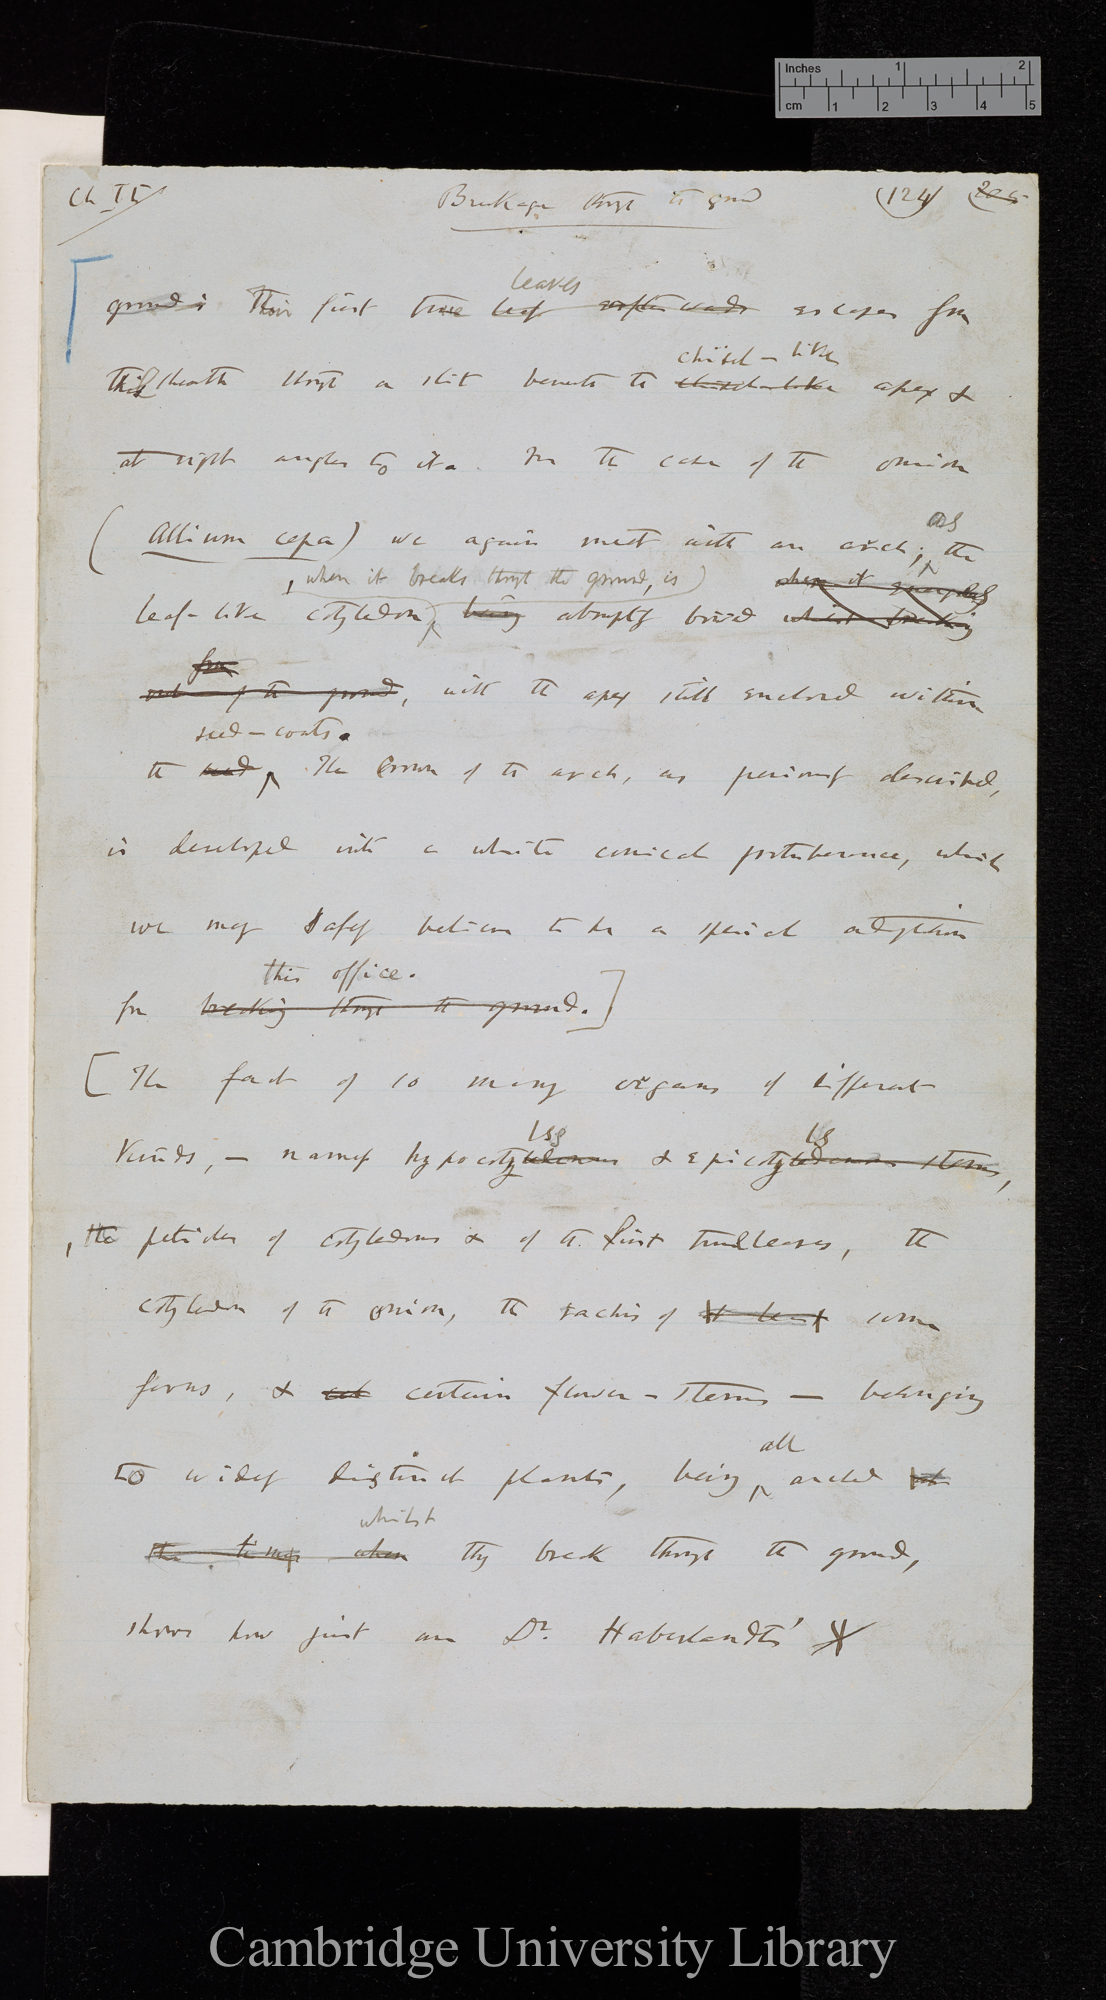 Inches 1 2
cm 1 2 3 4 5
Ch II
Breakage thrgh the grnd
(124)
leaves
ground Their first true leaf afterwards escapes from
chisel-like
this sheath thrgh a slit beneath the chisel-like apex &
at right angles to it. In the case of the onion
as
(Allium cepa) we again meet with an arch; the
, when it breaks thrgh the ground, is)
leaf-like cotyledon being abruptly bowed whilst breaking
from
out of the ground, with the apex still enclosed within
seed-coats.
the seed. The crown of the arch, as previously described,
is developed into a white conical protuberance, which
we may safely believe to be a special adaptation
this office.
for breaking thrgh the ground.]
[The fact of so many organs of different
ls
kinds, — namely hypocotyledonous & epicotyledonous stems,
, the petioles of cotyledons & of the first true leaves, the
cotyledon of the onion, the rachis of some
ferns, & certain flower-stems — belonging
all
to widely distinct plants, being arched at
whilst
the time when they break through the ground,
shows how just are Dr. Haberlandts'
Cambridge University Library